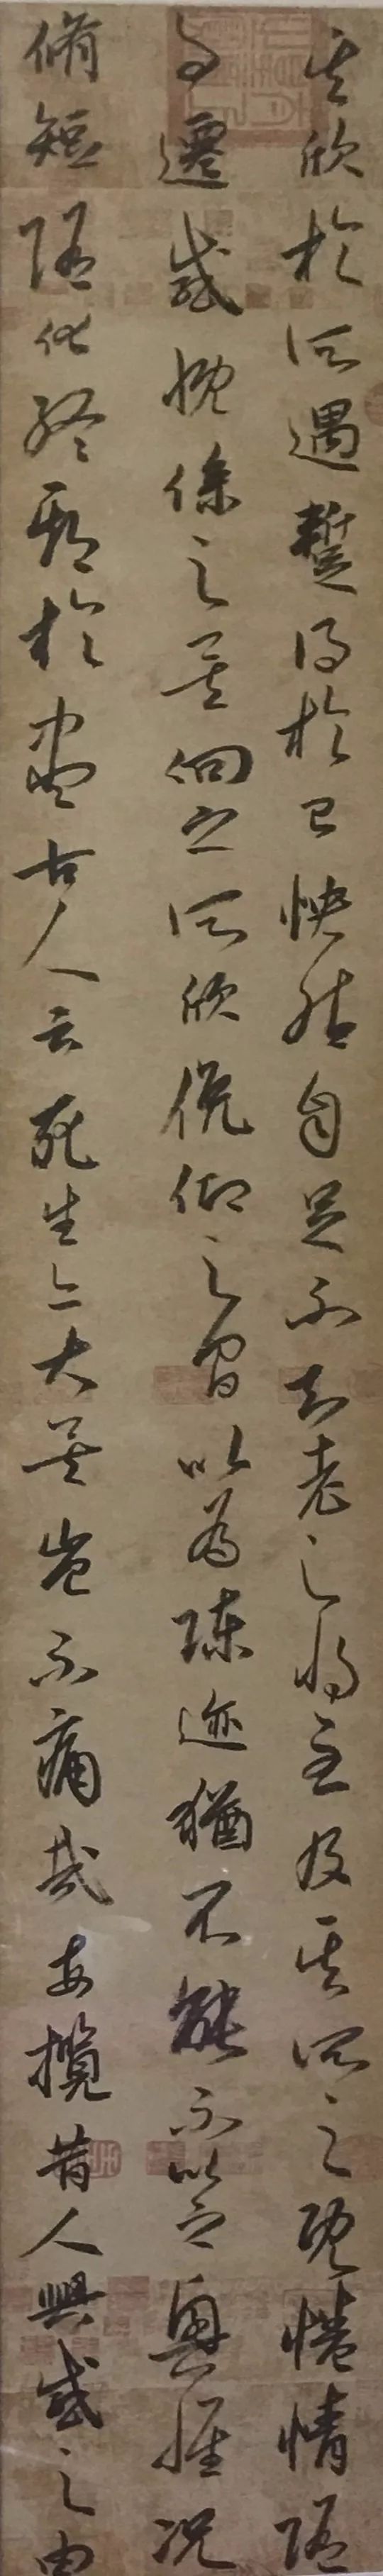 其欣於所遇蹔得於己怏然自足不知老之將至及其所之既惓情隨
事遷感慨係之矣向之所欣俛仰之間以為陳迹猶不能不以之興懷況
脩短隨化終期於盡古人云死生亦大矣豈不痛哉每攬昔人興感之由